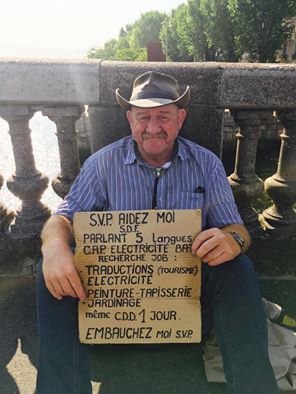 S.V.P. AIDEZ MOI
S.D.F.
PARLANT 5 langues
C.A.P. ELECTRICITE BAT
RECHERCHE JOB :
- TRADUCTIONS (TOURISME)
- ELECTRICITE
- PEINTURE - TAPISSERIE
- JARDINAGE
même C.D.D. 1 JOUR.
EMBAUCHEZ MOI S.V.P.